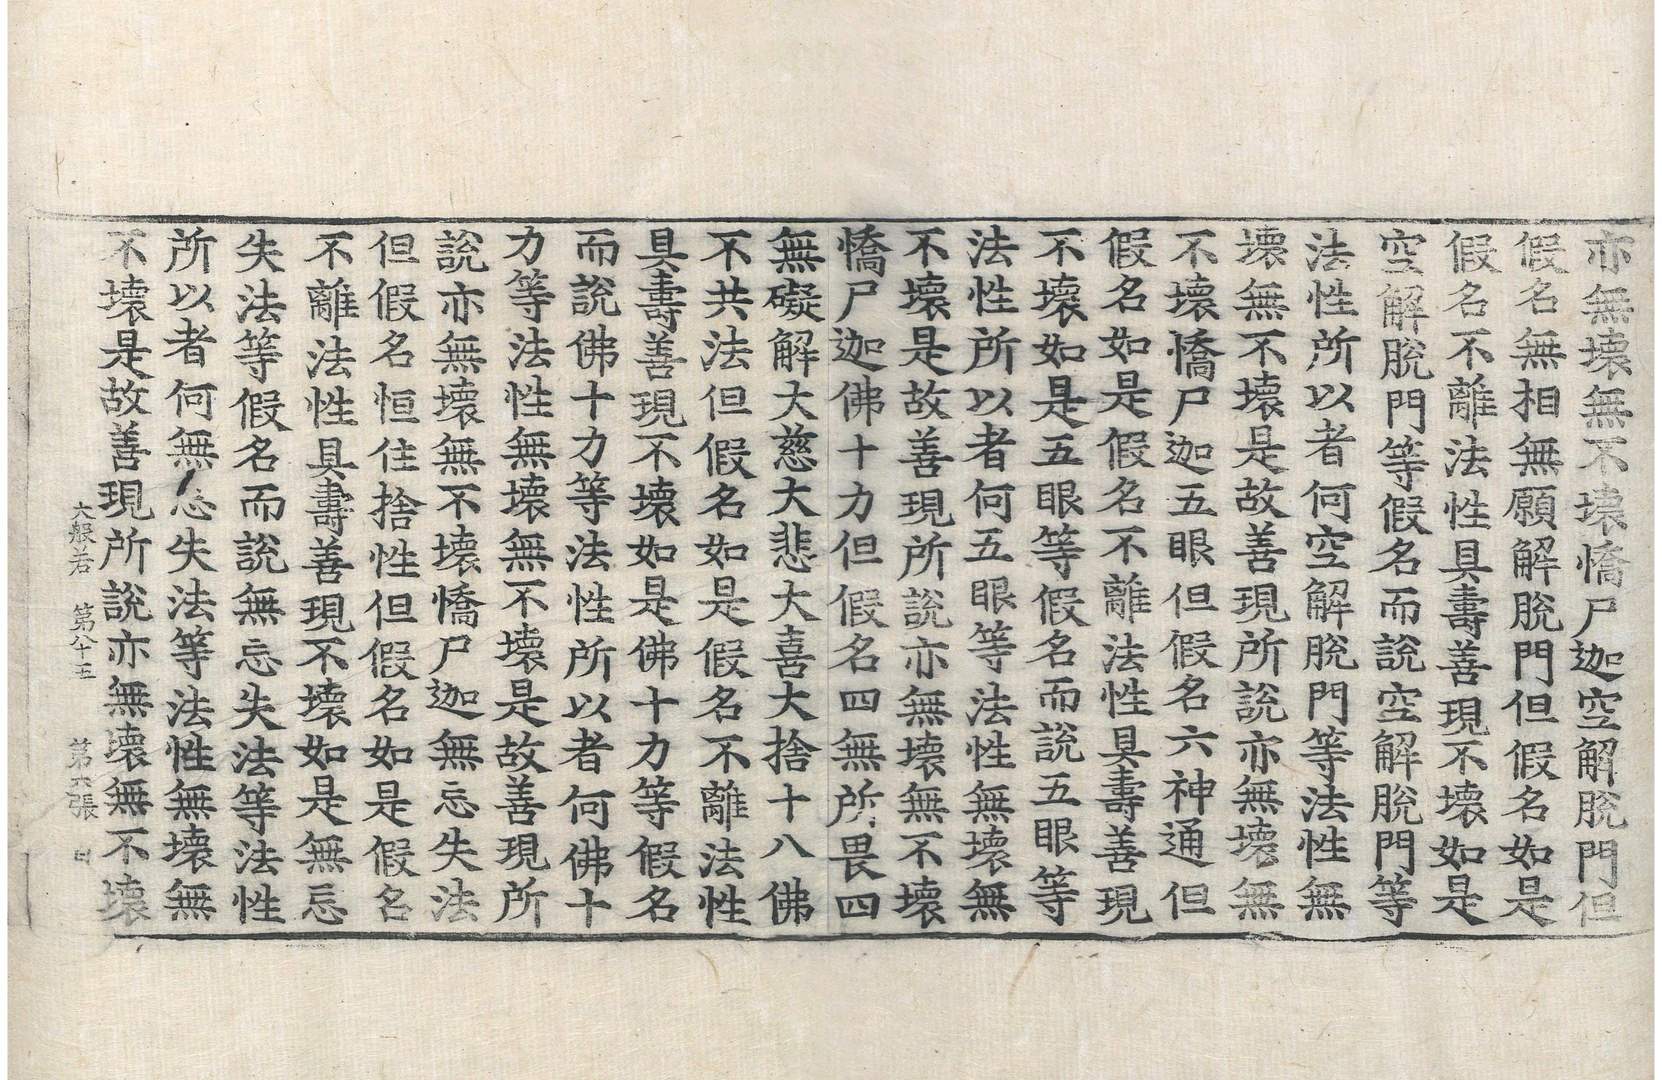 亦無壞無不壞憍尸迦空解脫門但
假名無相無願解脫門但假名如是
假名不離法性具壽善現不壞如是
空解脫門等假名而說空解脫門等
法性所以者何空解脫門等法性無
壞無不壞是故善現所說亦無壞無
不壞憍尸迦五眼但假名六神通但
假名如是假名不離法性具壽善現
不壞如是五眼等假名而說五眼等
法性所以者何五眼等法性無壞無
不壞是故善現所說亦無壞無不壞
憍尸迦佛十力但假名四無所畏四
無礙解大慈大悲大喜大捨十八佛
不共法但假名如是假名不離法性
具壽善現不壞如是佛十力等假名
而說佛十力等法性所以者何佛十
力等法性無壞無不壞是故善現所
說亦無壞無不壞憍尸迦無忘失法
但假名恒住捨性但假名如是假名
不離法性具壽善現不壞如是無忘
失法等假名而說無忘失法等法性
所以者何無忘失法等法性無壞無
不壞是故善現所說亦無壞無不壞
大般若 第八十五 第六張 日